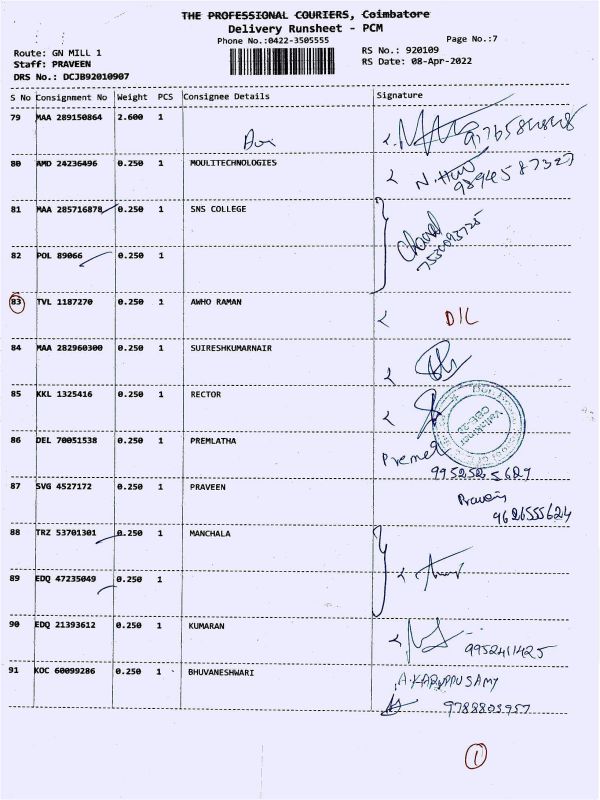 THE PROFESSIONAL COURIERS, Coimbatore
Delivery Runsheet - PCM
Phone No.:0422-3505555 Page No.:7
Route: GN MILL 1 RS No.: 920109
Staff: PRAVEEN RS Date: 08-Apr-2022
DRS No.: DCJB92010907
S No Consignment No Weight PCS Consignee Details Signature
79 MAA 289150864 2.600 1
80 AMD 24236496 0.250 1 MOULITECHNOLOGIES
9894587327
81 MAA 285716878 0.250 1 SNS COLLEGE
82 POL 89066 0.250 1
83 TVL 1187270 0.250 1 AWHO RAMAN D/L
84 MAA 282960300 0.250 1 SUIRESHKUMARNAIR
85 KKL 1325416 0.250 1 RECTOR
86 DEL 70051538 0.250 1 PREMLATHA
9952525627
87 SVG 4527172 0.250 1 PRAVEEN
9626555624
88 TRZ 53701301 0.250 1 MANCHALA
89 EDQ 47235049 0.250 1
90 EDQ 21393612 0.250 1 KUMARAN
9952411425
91 KOC 60099286 0.250 1 BHUVANESHWARI A.KARUPPUSAMY
9788803957
1